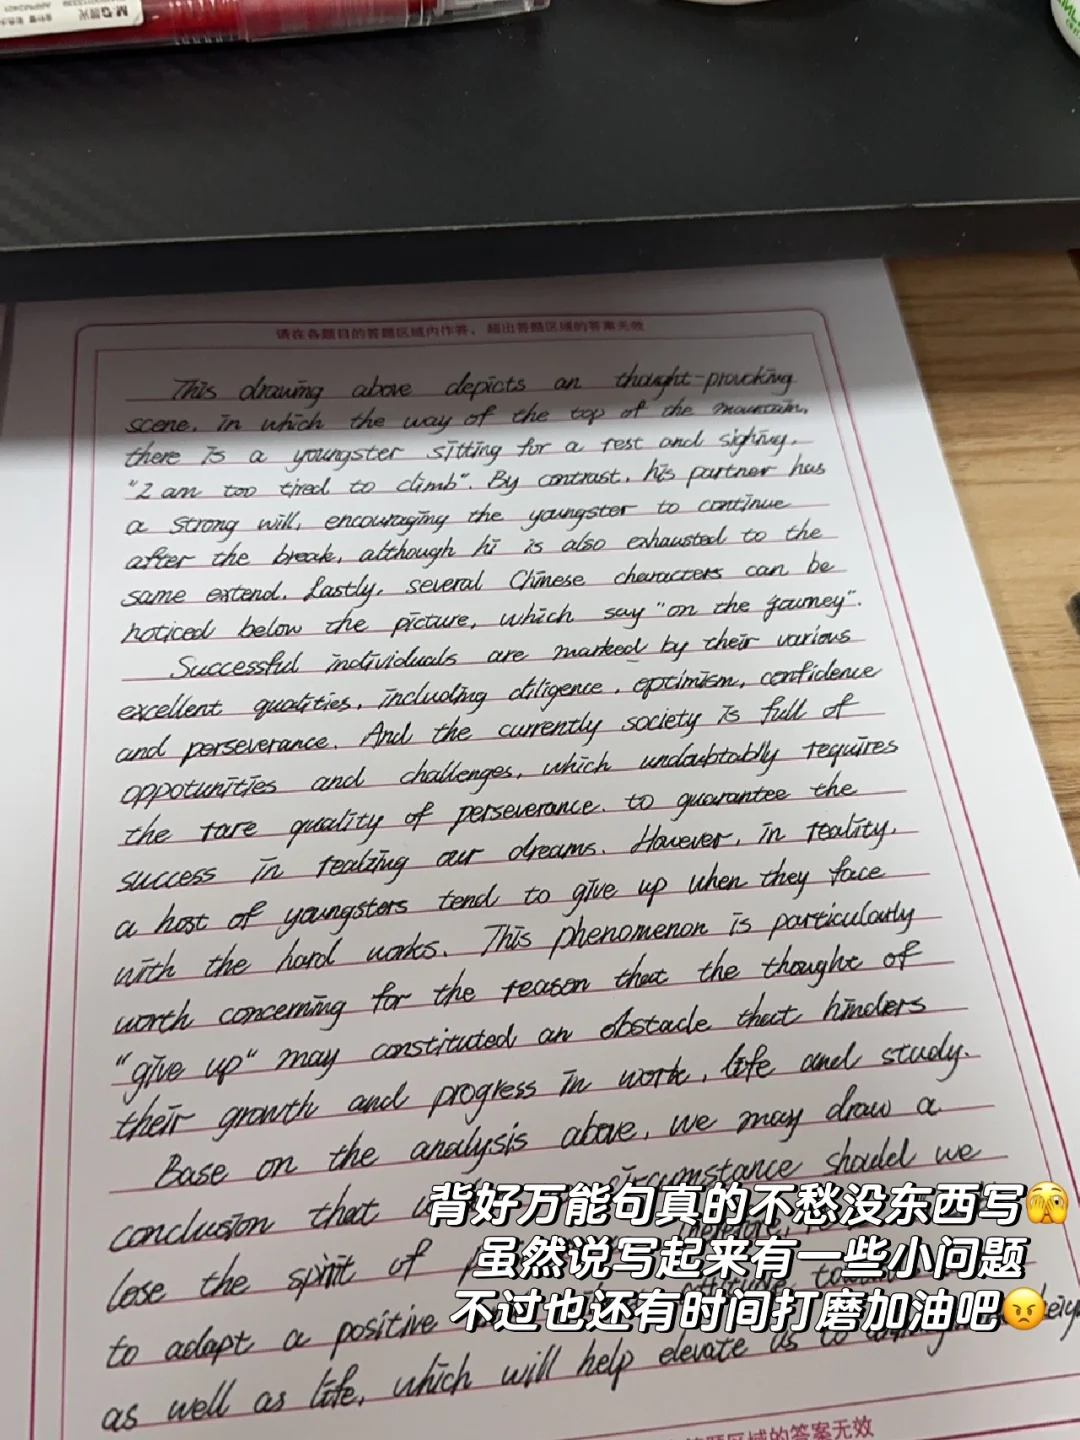 M&G晨光
请在各题目的答题区域内作答，超出答题区域的答案无效
This drawing above depicts an thought-provoking
scene, in which the way of the top of the mountain,
there is a youngster sitting for a rest and sighing,
"I am too tired to climb". By contrast, his partner has
a strong will, encouraging the youngster to continue
after the break, although hi is also exhausted to the
same extend. Lastly, several Chinese characters can be
noticed below the picture, which say "on the journey".
Successful individuals are marked by their various
excellent qualities, including diligence, optimism, confidence
and perseverance. And the currently society is full of
oppotunities and challenges, which undoubtablly requires
the rare quality of perseverance. to guarantee the
success in realizing our dreams. However, in reality,
a host of youngsters tend to give up when they face
with the hard works. This phenomenon is particularly
worth concerning for the reason that the thought of
"give up" may constituted an obstacle that hinders
their growth and progress in work, life and study.
Base on the analysis above, we may draw a
conclusion that circumstance should we
lose the spirit of Therefore,
to adapt a positive attitude
as well as life, which will help elevate us to
背好万能句真的不愁没东西写🫣
虽然说写起来有一些小问题
不过也还有时间打磨加油吧😠
题区域的答案无效